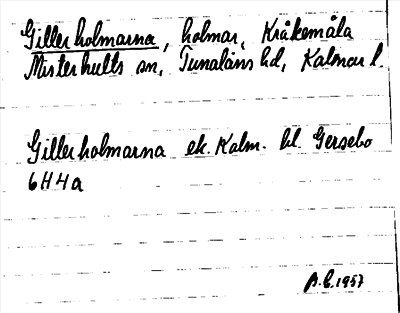 Gillerholmarna, holmar, Kråkemåla
Misterhults sn, Tunaläns hd, Kalmar l.
Gillerholmarna ek. Kalm. bl. Gersebo
6H4a
A.E. 1957